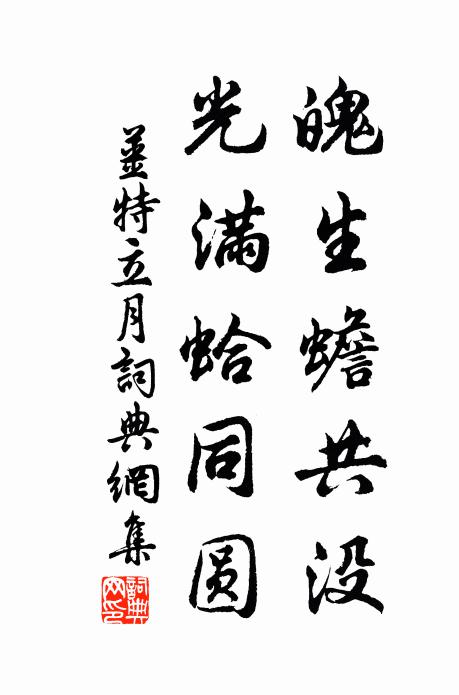 魄生蟾共没
光满蛤同圆
姜特立月詞典網集
詞典网印